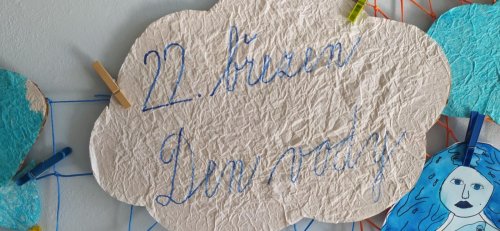 22. březen
Den vody